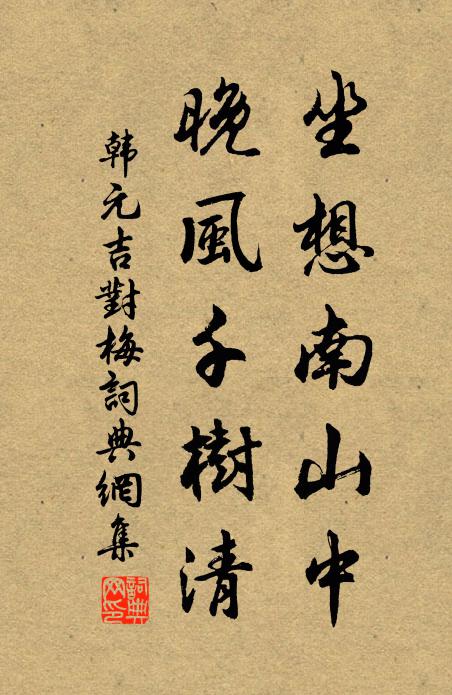 坐想南山中
晚風千樹清
韩元吉對梅詞典網集
詞典網印